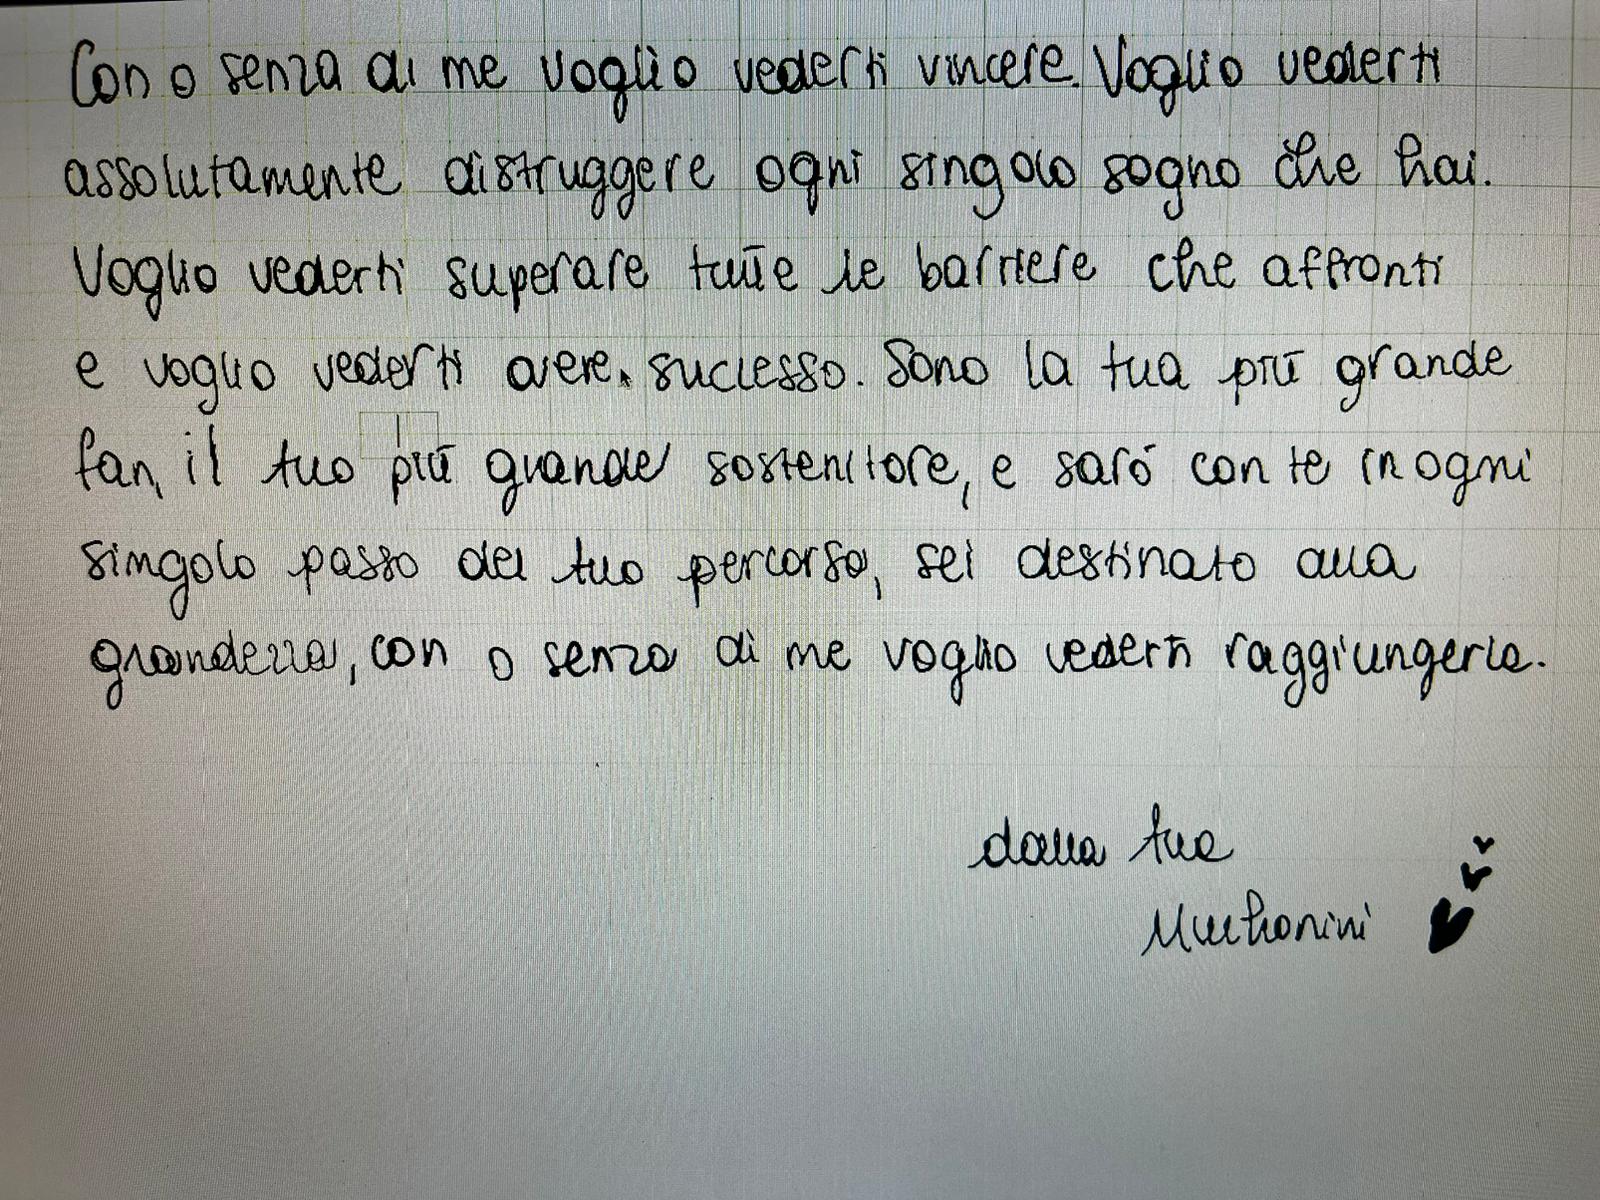 Con o senza di me voglio vederti vincere. Voglio vederti
assolutamente distruggere ogni singolo sogno che hai.
Voglio vederti superare tutte le barriere che affronti
e voglio vederti avere successo. Sono la tua più grande
fan, il tuo più grande sostenitore, e saró con te in ogni
singolo passo del tuo percorso, sei destinato alla
grandezza, con o senza di me voglio vederti raggiungerla.
dalla tua